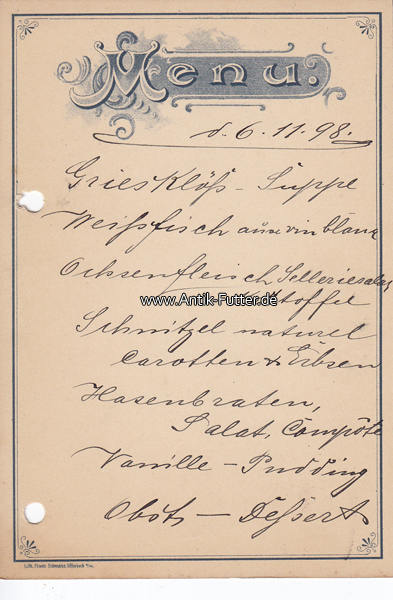 Menu.
d. 6. 11. 98.
Griesklöß - Suppe
Weissfisch au vin blanc
Ochsenfleisch Selleriesalat
www.Antik-Futter.de
Schnitzel naturel
Carotten & Erbsen
Hasenbraten,
Salat, Compôte
Vanille - Pudding
Obst - Dessert